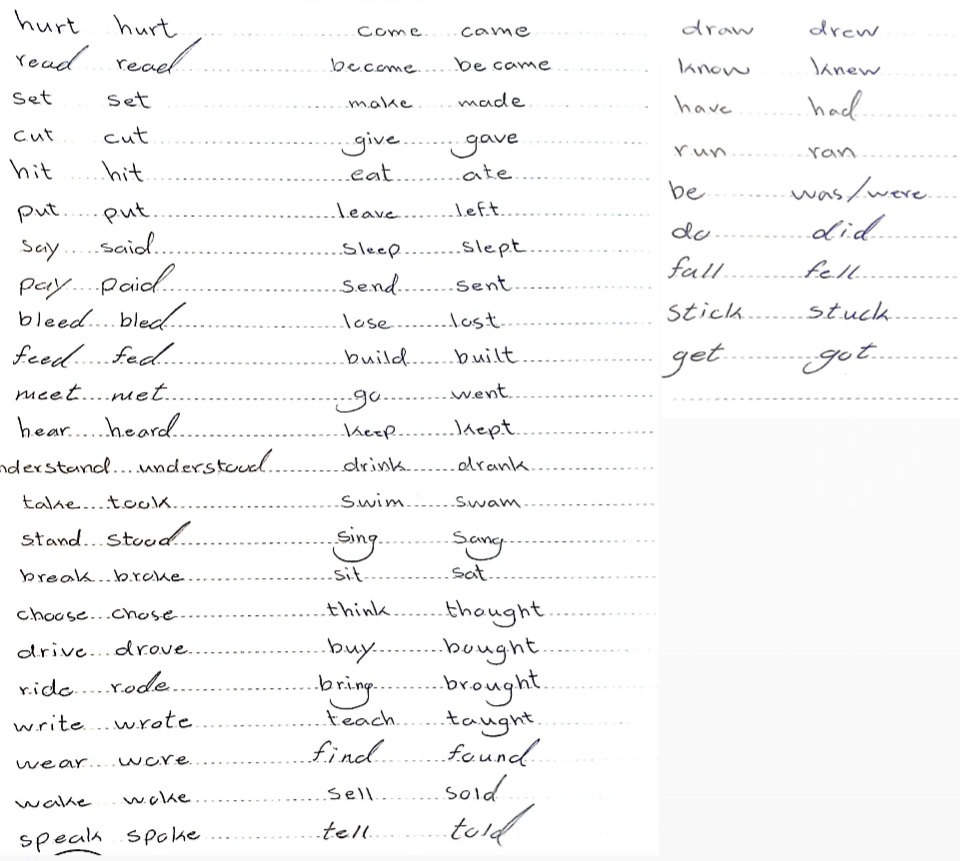 hurt hurt
read read
set set
cut cut
hit hit
put put
say said
pay paid
bleed bled
feed fed
meet met
hear heard
nderstand understood
take took
stand stood
break broke
choose chose
drive drove
ride rode
write wrote
wear wore
wake woke
speak spoke
come came
become became
make made
give gave
eat ate
leave left
sleep slept
send sent
lose lost
build built
go went
keep kept
drink drank
swim swam
sing sang
sit sat
think thought
buy bought
bring brought
teach taught
find found
sell sold
tell told
draw drew
know knew
have had
run ran
be was/were
do did
fall fell
stick stuck
get got